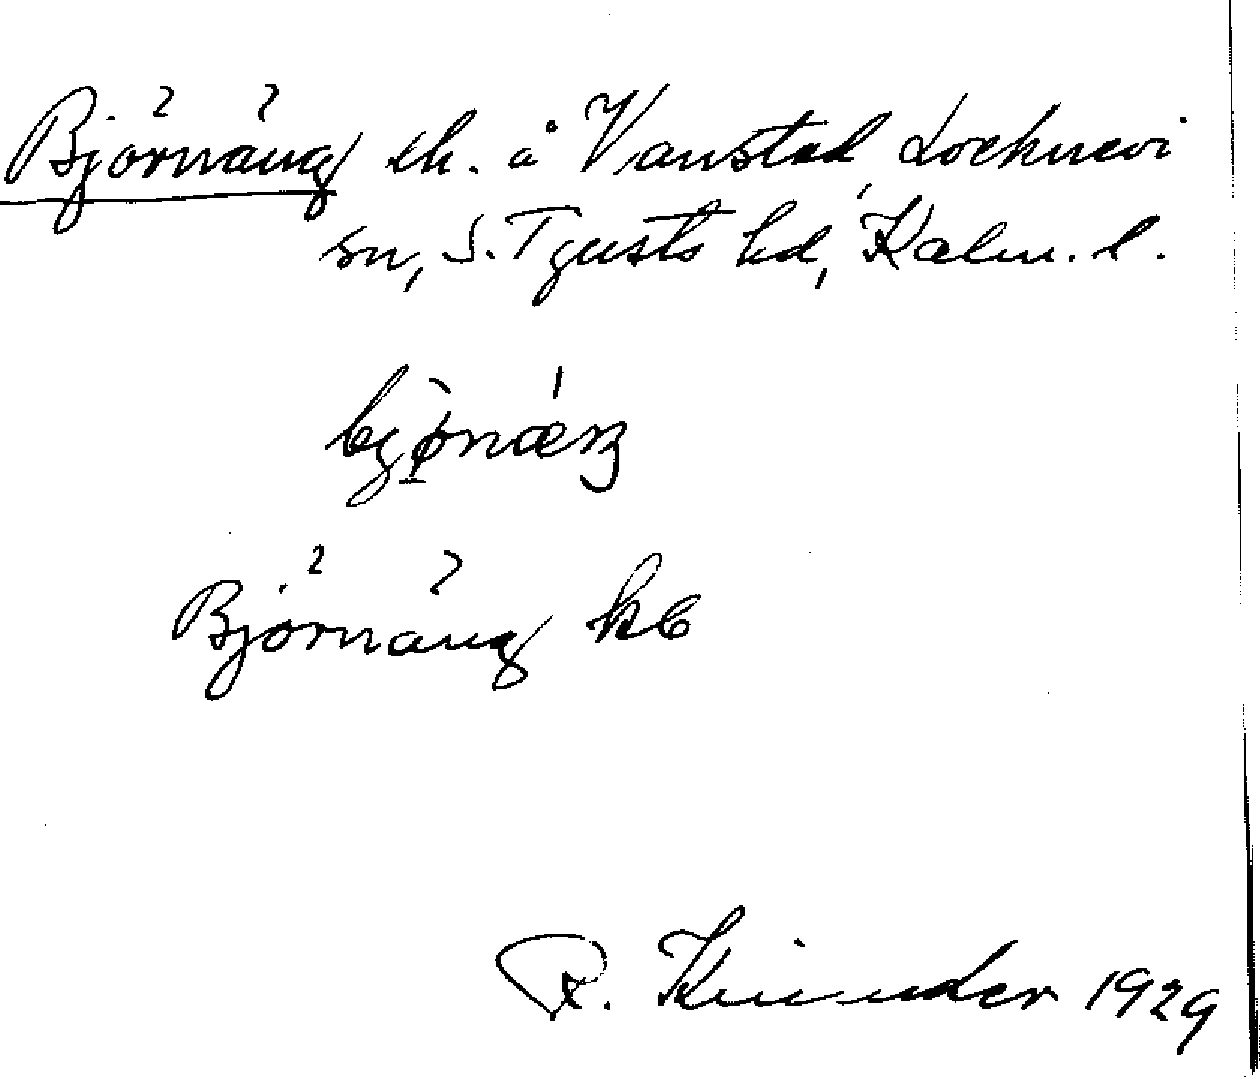 Björnäng lh. å Vanstad Locknevi
sn, S. Tjusts hd, Kalm. l.
bjǿnæŋ
Björnäng kb
R. Kinnander 1929